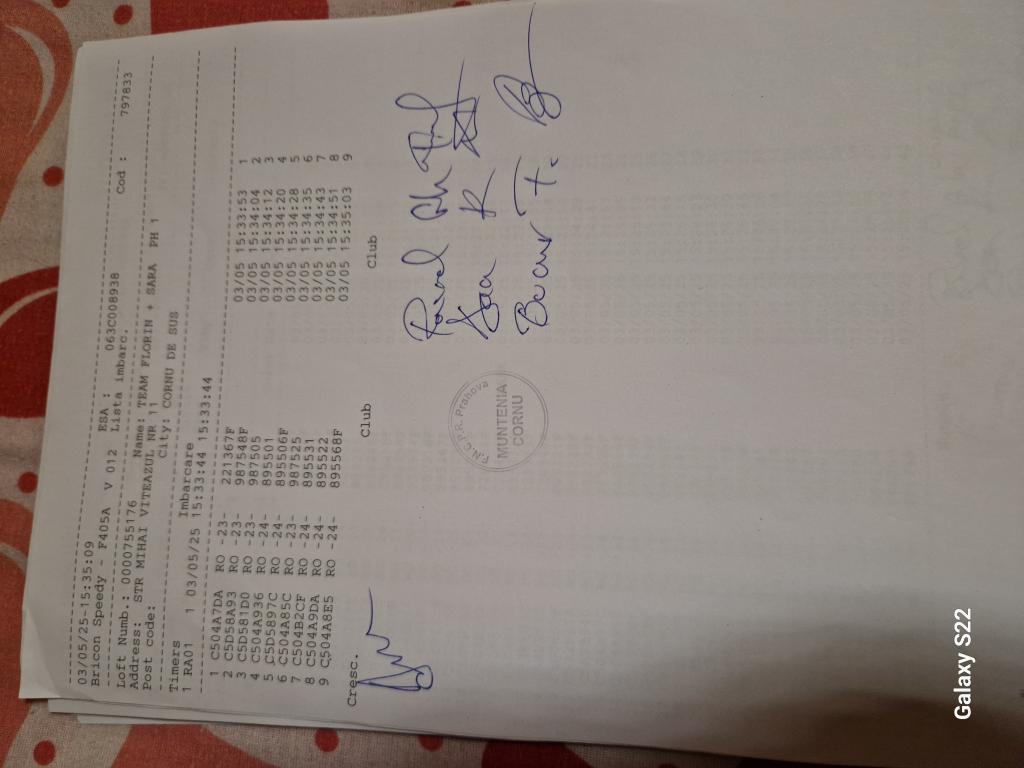 03/05/25-15:35:09
Bricon Speedy - F405A V 012 ESA : 063C008938
Lista imbarc. Cod : 797833
Loft Numb.: 0000755176 Name: TEAM FLORIN + SARA PH 1
Address: STR MIHAI VITEAZUL NR 11
Post code: City: CORNU DE SUS
Timers Imbarcare
1 RA01 1 03/05/25 15:33:44 15:33:44
1 C504A7DA RO -23- 221367F 03/05 15:33:53 1
2 C5D58A93 RO -23- 987548F 03/05 15:34:04 2
3 C5D581D0 RO -23- 987505 03/05 15:34:12 3
4 C504A936 RO -24- 895501 03/05 15:34:20 4
5 C5D5897C RO -24- 895506F 03/05 15:34:28 5
6 C504A85C RO -23- 987525 03/05 15:34:35 6
7 C504B2CF RO -24- 895531 03/05 15:34:43 7
8 C504A9DA RO -24- 895522 03/05 15:34:51 8
9 C504A8E5 RO -24- 895568F 03/05 15:35:03 9
Cresc. Club Club
F.N.C.P.R. Prahova
MUNTENIA
CORNU
Galaxy S22